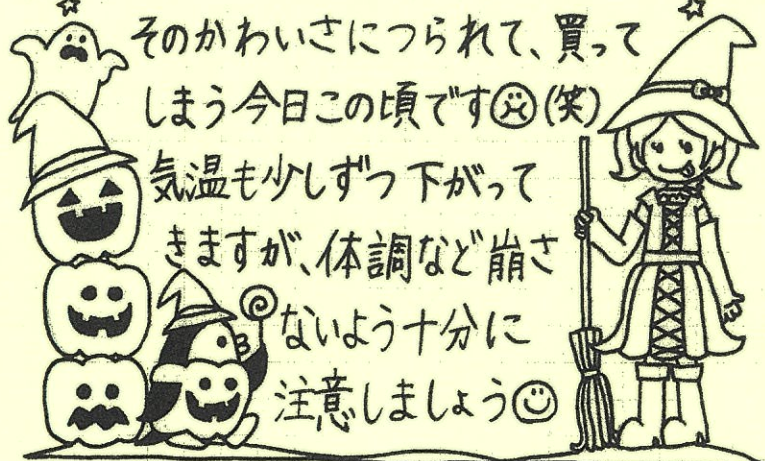 そのかわいさにつられて、買って
しまう今日この頃です(笑)
気温も少しずつ下がって
きますが、体調など崩さ
ないよう十分に
注意しましょう